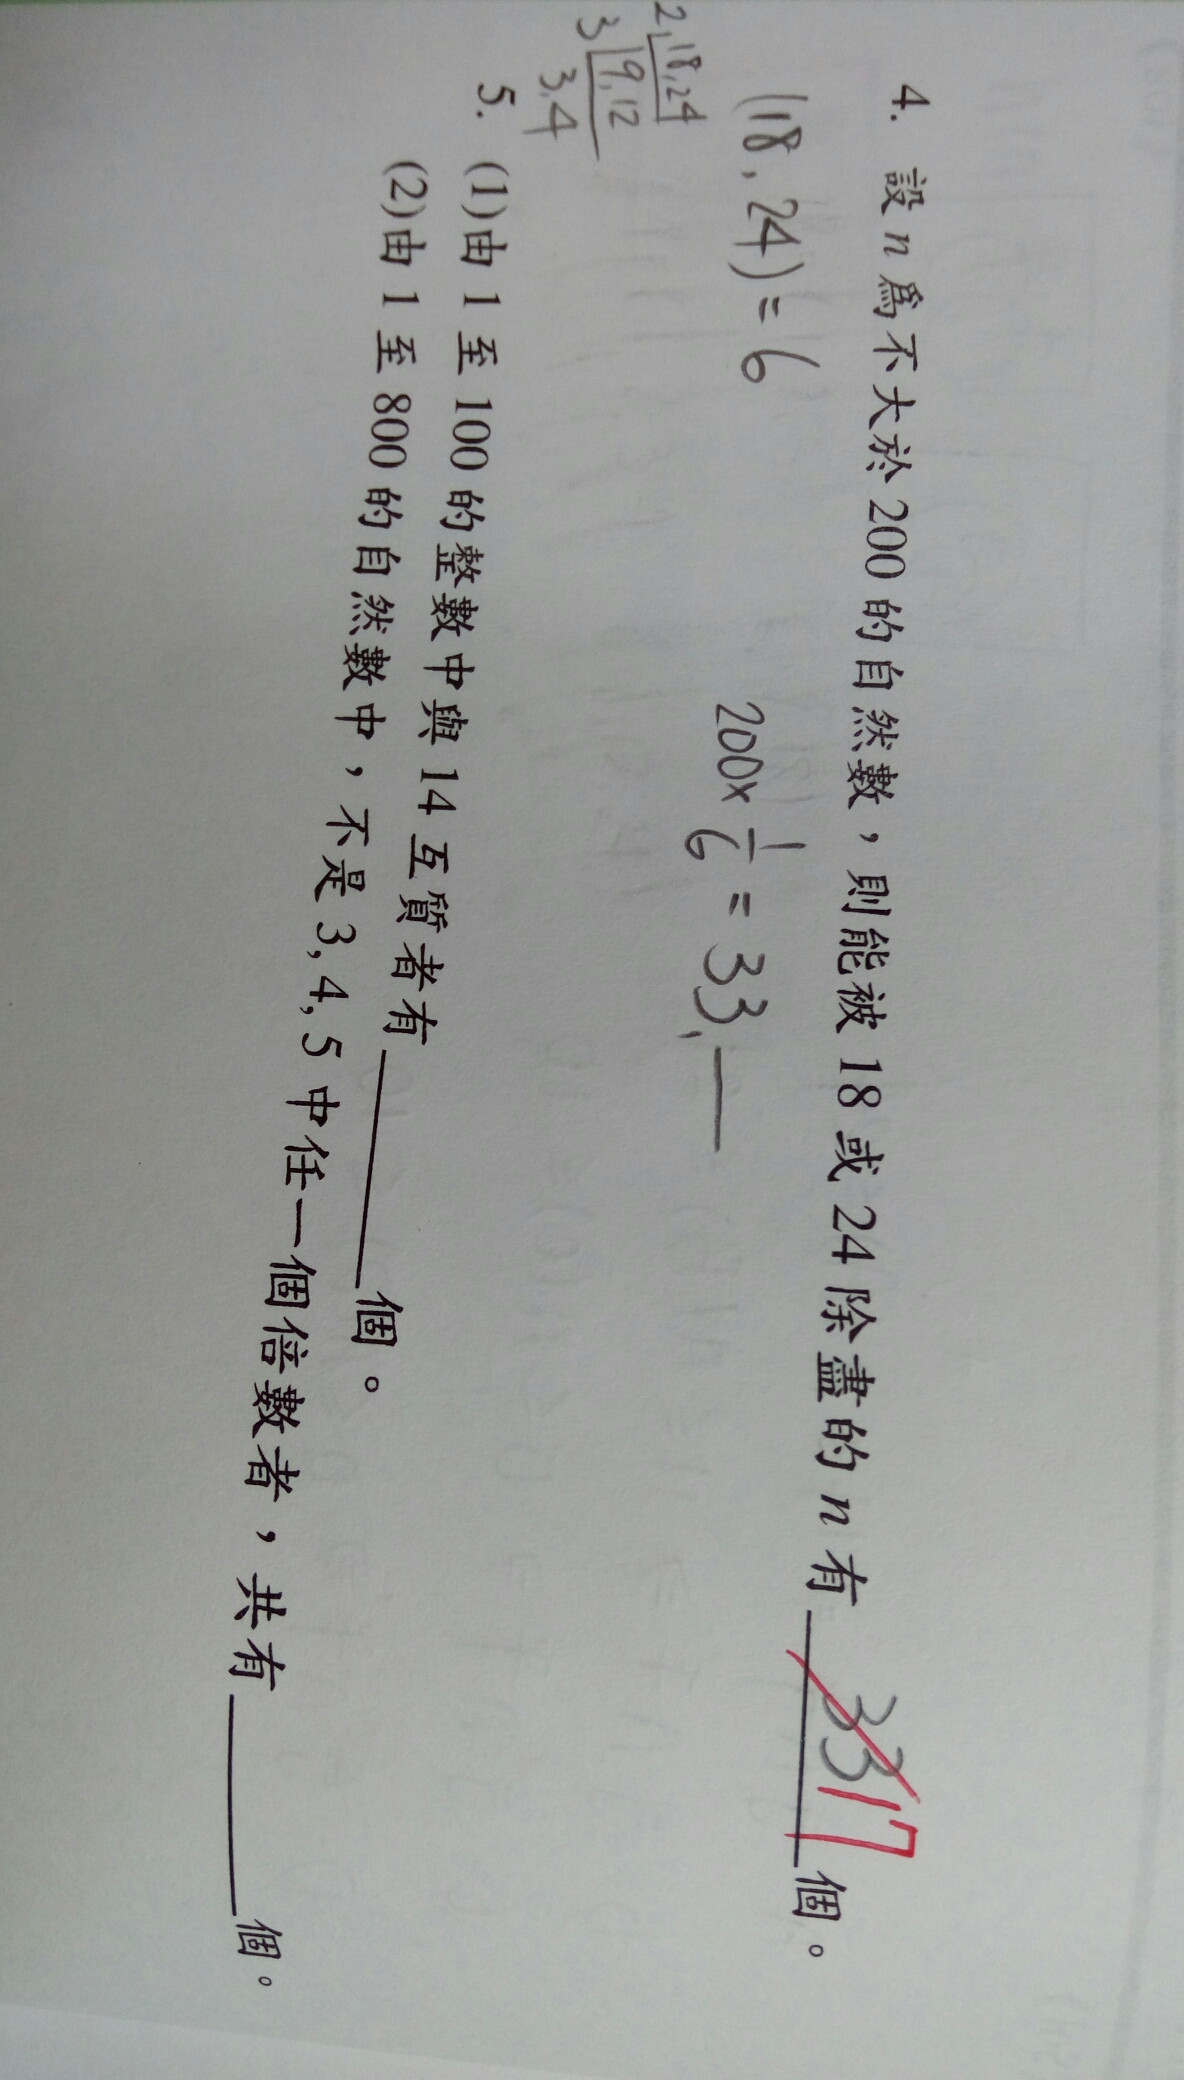 4. 設 n 爲不大於 200 的自然數，則能被 18 或 24 除盡的 n 有 33 17 個。
(18, 24) = 6
200 × 1/6 = 33, —
2 18,24
3 9,12
3,4
5. (1)由 1 至 100 的整數中與 14 互質者有＿＿＿個。
(2)由 1 至 800 的自然數中，不是 3, 4, 5 中任一個倍數者，共有＿＿＿個。